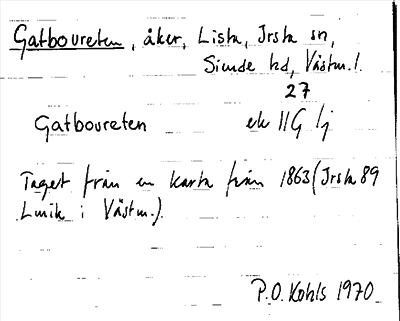 Gatboureten, åker, Lista, Irsta sn,
Siende hd, Västm.l.
27
Gatboureten ek 11G 1j
Taget från en karta från 1863 (Irsta 89
Lmik i Västm.).
P.O. Kohls 1970